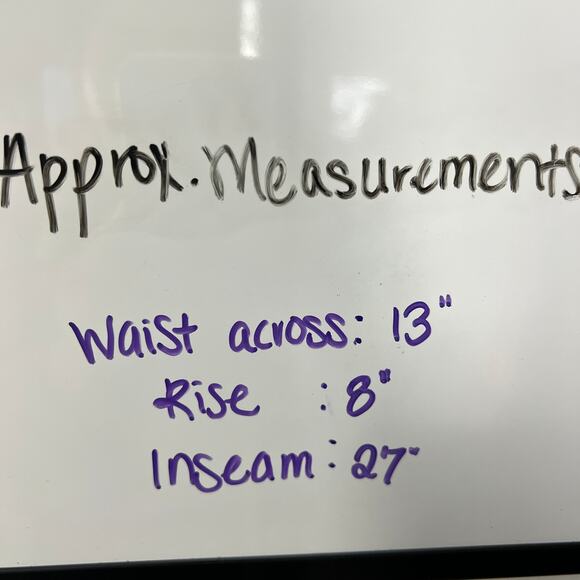 Approx. Measurements
Waist across: 13"
Rise : 8"
Inseam: 27"